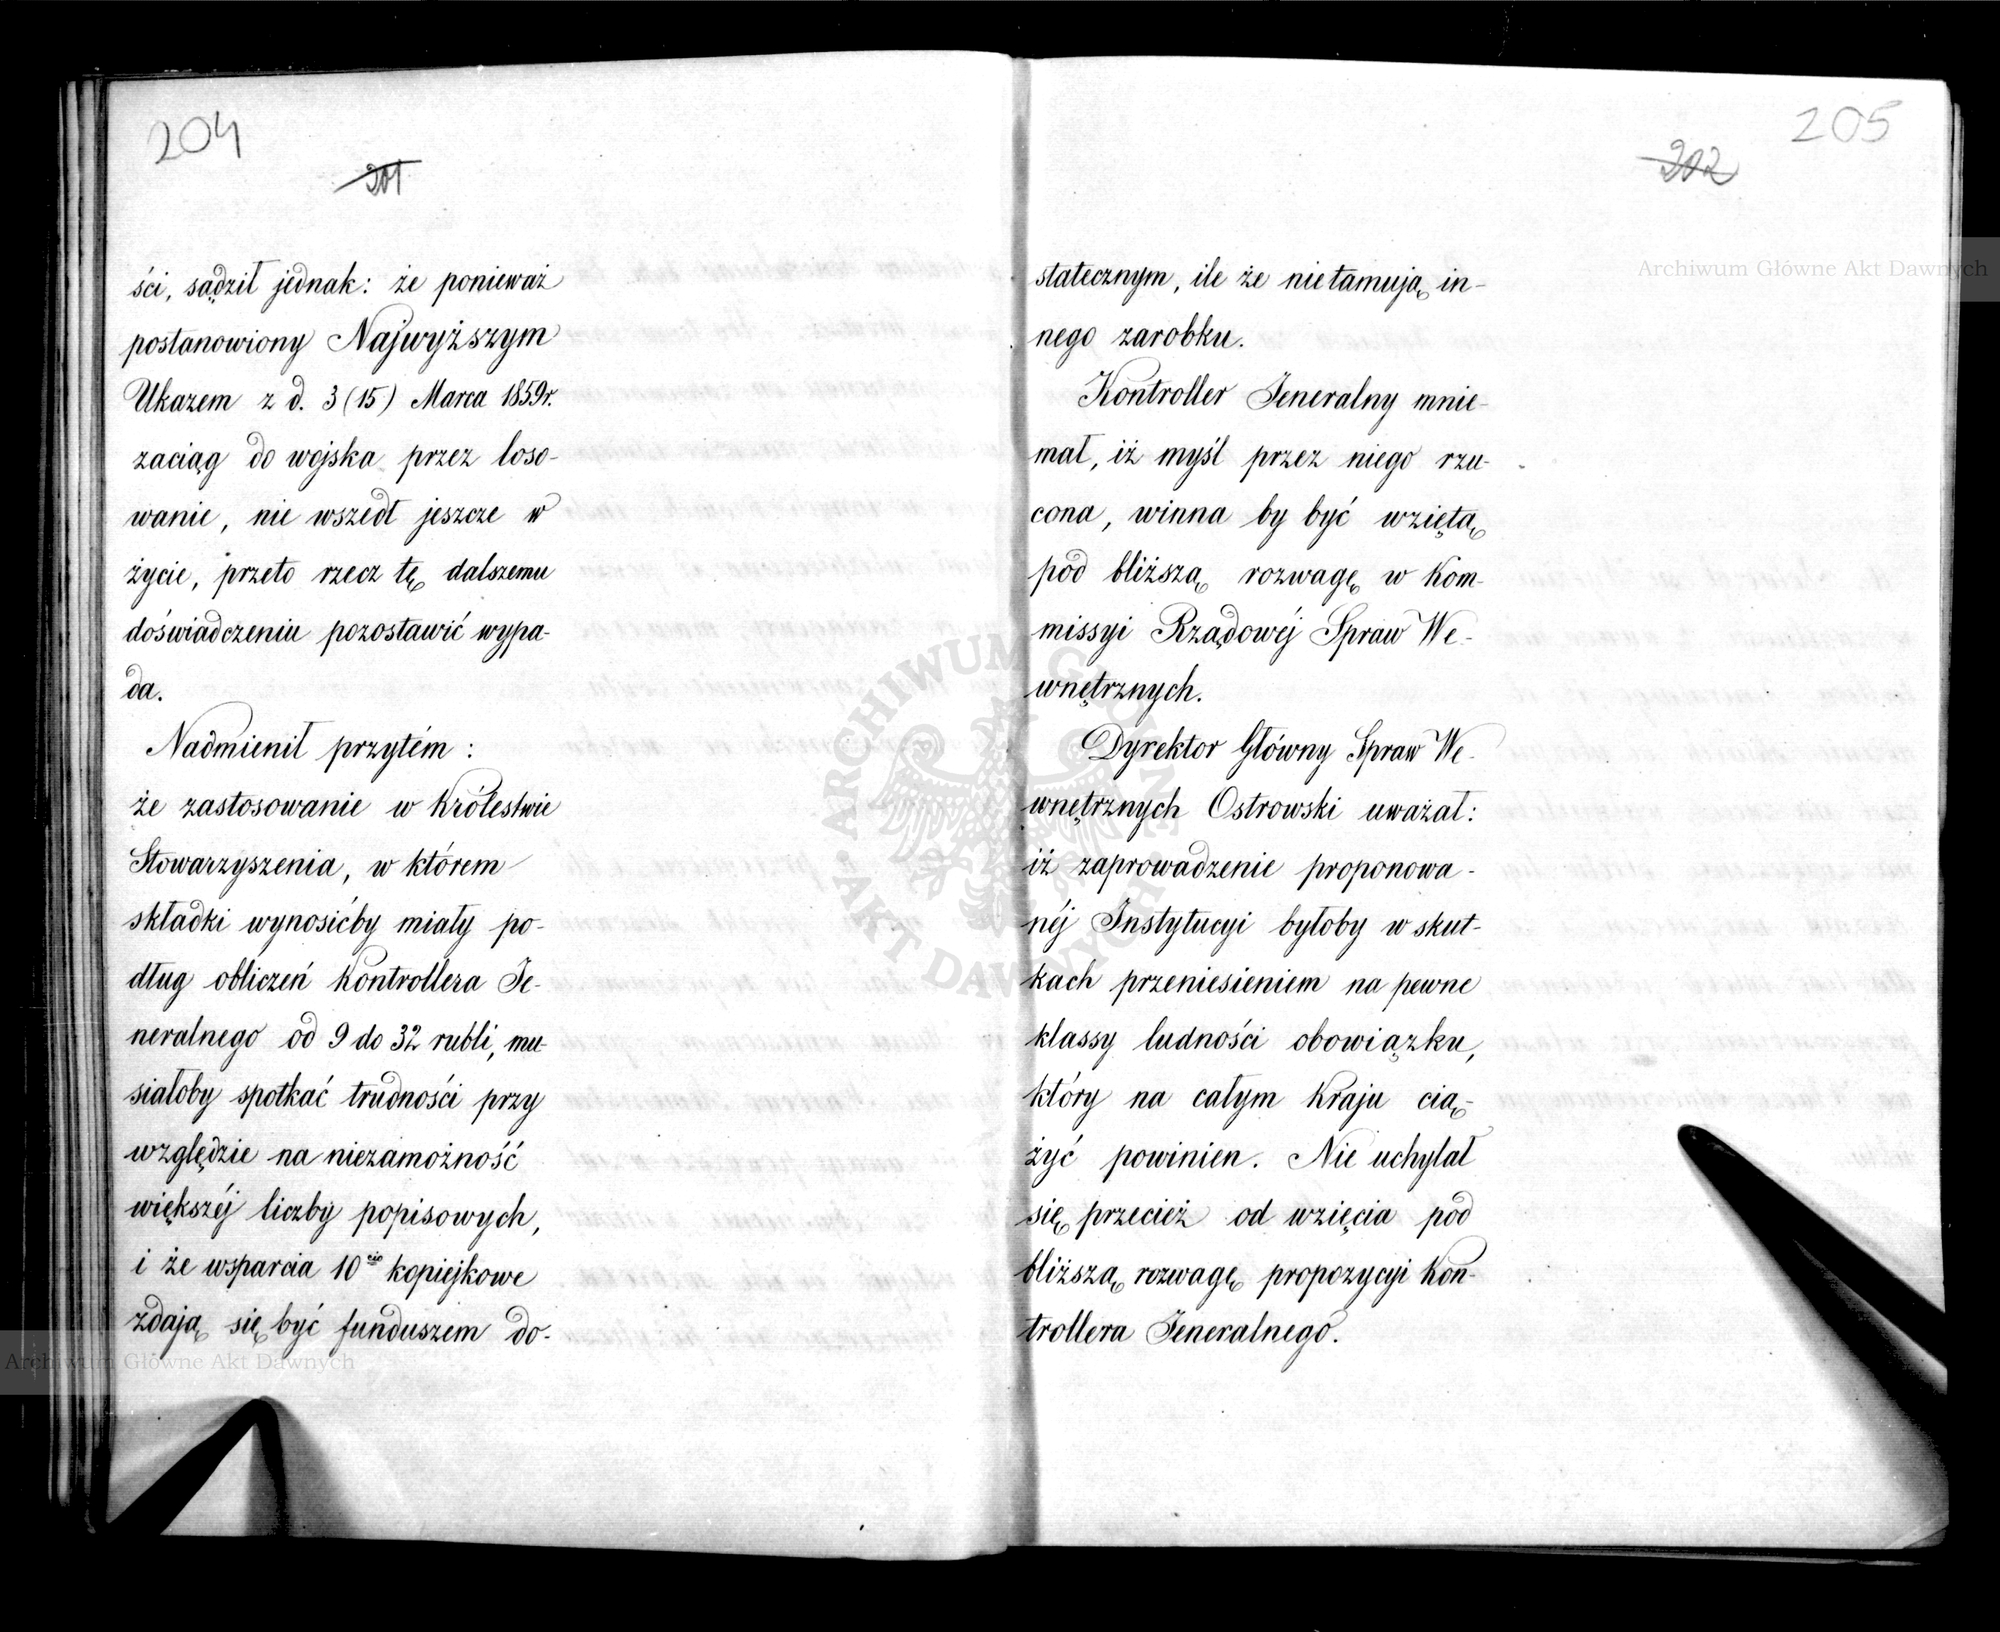 204
201
ści, sądził jednak: że ponieważ
postanowiony Najwyższym
Ukazem z d. 3 (15) Marca 1859r.
zaciąg do wojska przez loso-
wanie, nie wszedł jeszcze w
życie, przeto rzecz tę dalszemu
doświadczeniu pozostawić wypa-
da.
Nadmienił przytém:
że zastosowanie w Królestwie
Stowarzyszenia, w którem
składki wynosićby miały po-
dług obliczeń Kontrollera Je-
neralnego od 9 do 32 rubli, mu-
siałoby spotkać trudności przy
względzie na niezamożność
większéj liczby popisowych,
i że wsparcia 10cio kopiejkowe
zdają się być funduszem do-
205
202
statecznym, ile że nietamują in-
nego zarobku.
Kontroller Jeneralny mnie-
mał, iż myśl przez niego rzu-
cona, winna by być wziętą
pod bliższą rozwagę w Kom-
missyi Rządowéj Spraw We-
wnętrznych.
Dyrektor Główny Spraw We-
wnętrznych Ostrowski uważał:
iż zaprowadzenie proponowa-
néj Instytucyi byłoby w skut-
kach przeniesieniem na pewne
klassy ludności obowiązku,
który na całym Kraju cią-
żyć powinien. Nie uchylał
się przecież od wzięcia pod
bliższą rozwagę propozycyi Kon-
trollera Jeneralnego.
Archiwum Główne Akt Dawnych
Archiwum Główne Akt Dawnych
ARCHIWUM GŁÓWNE AKT DAWNYCH